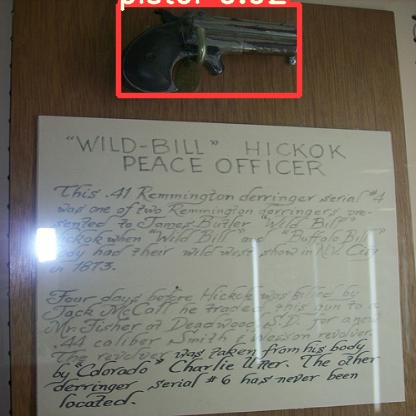 pistol 0.92
"WILD-BILL" HICKOK
PEACE OFFICER
This .41 Remmington derringer serial #4
was one of two Remmington derringers pre-
sented to James Butler "Wild Bill"
Hickok when "Wild Bill" and "Buffalo Bill"
Cody had their wild west show in N.Y. City
in 1873.
Four days before Hickok was killed by
Jack McCall he traded this gun to a
Mr. Fisher at Deadwood, S.D. for a
.44 caliber Smith & Wesson revolver.
The revolver was taken from his body
by "Colorado" Charlie Utter. The other
derringer, serial #6 has never been
located.